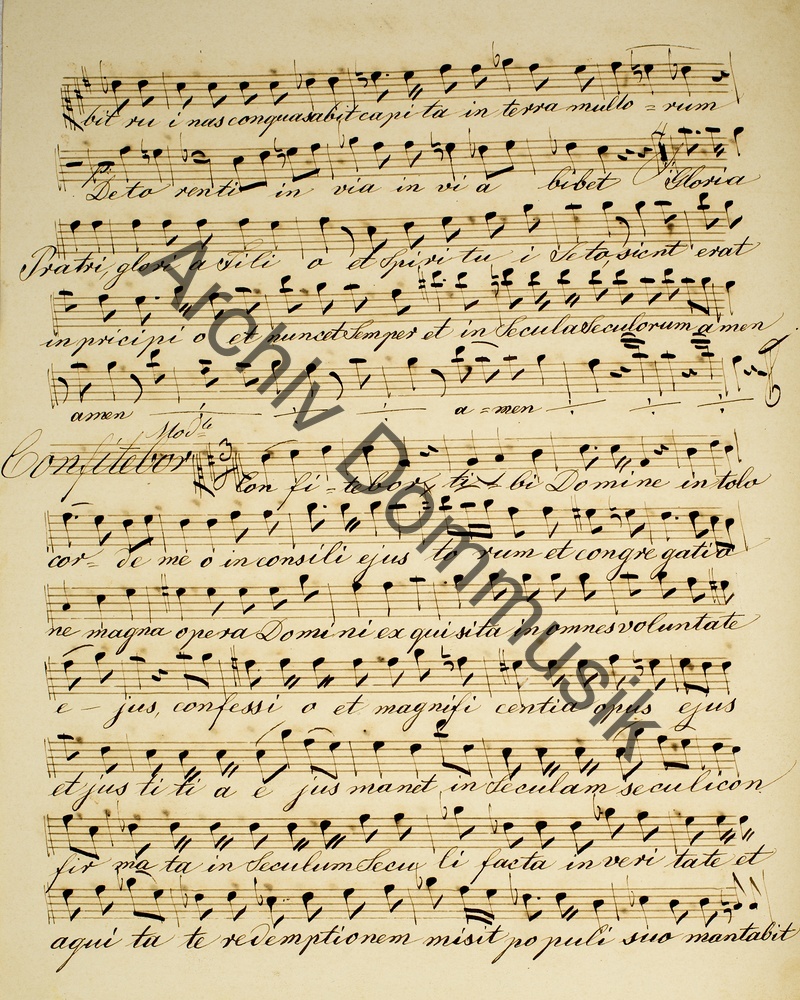 bit ru i nas conquasabit capi ta in terra multo = rum
De to renti in via in vi a bibet Gloria
Pratri, glori a Fili o et Spiri tu i Scto, sicnt erat
in pricipi o et nuncet Semper et in Secula Seculorum amen
amen a = men
Modto
Confitebor
Con fi = tebor ti = bi Domine in tolo
cor = de me o in consili ejus to rum et congre gatio
ne magna opera Domini ex qui sita in omnes voluntate
e - jus, confessi o et magnifi centia opus ejus
et jus ti ti a e jus manet in Seculam seculi con
fir ma ta in Seculum Secu li facta in veri tate et
aqui ta te redemptionem misit populi suo mantabit
Archiv Dommusik